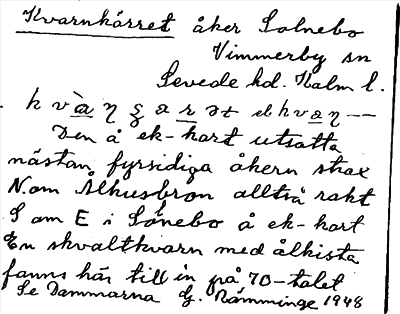 Kvarnkärret åker Solnebo
Vimmerby sn
Sevede hd. Kalm l.
Den å ek-kart utsatta
nästan fyrsidiga åkern strax
N om Ålhusbron alltså rakt
S om E i Solnebo å ek-kart
En skvaltkvarn med ålkista
fanns här till in på 70-talet
Se Dammarna G. Rämminge 1948